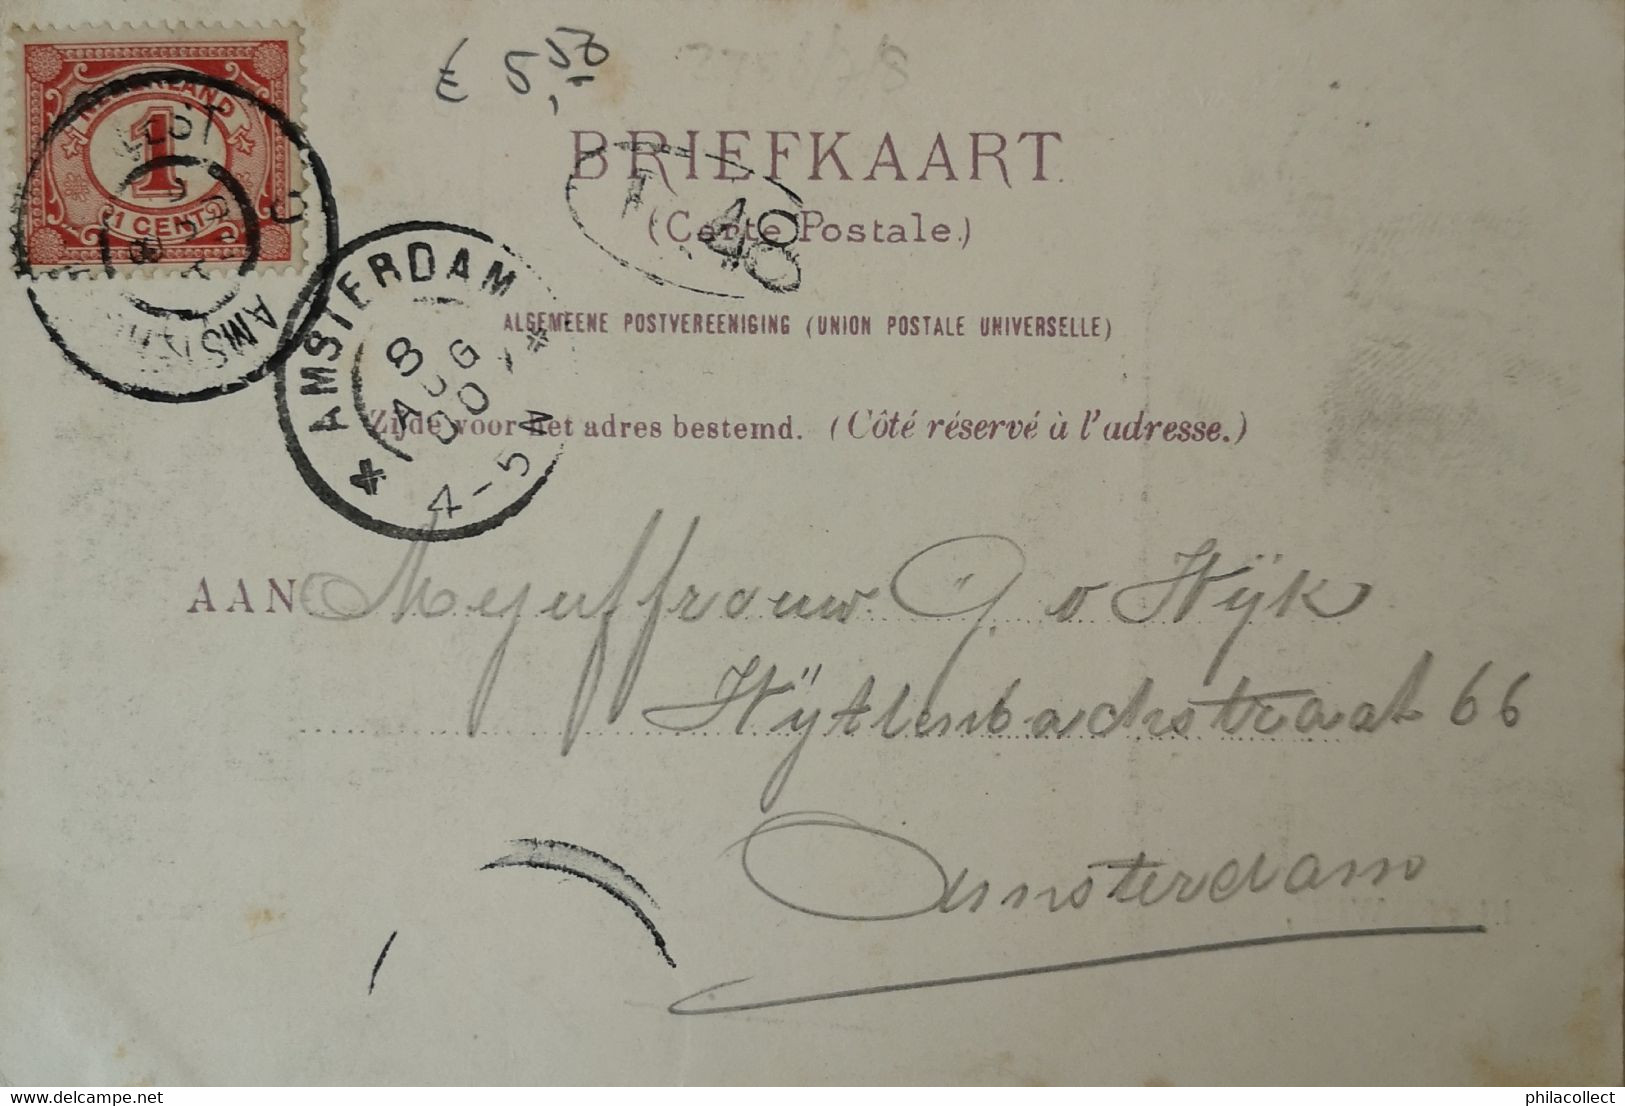 NEDERLAND
1
1 CENT
€ 5,50
BRIEFKAART
(Carte Postale.)
48
ALGEMEENE POSTVEREENIGING (UNION POSTALE UNIVERSELLE)
AMSTERDAM
8 AUG 00
4-5 N
Zijde voor het adres bestemd. (Côté réservé à l'adresse.)
AAN Mejuffrouw G. v Wijk
Wijttenbachstraat 66
Amsterdam
philacollect